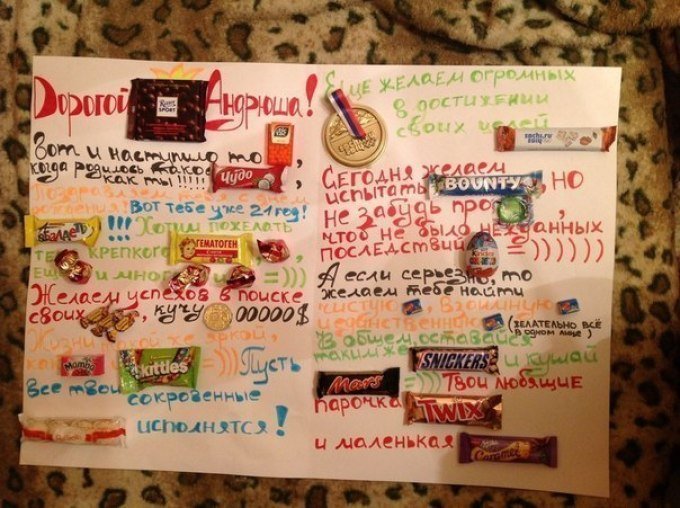 Дорогой Ritter SPORT Андрюша!
Вот и наступило то
когда родилось такое Чудо,
как ты!!!!!
Поздравляем тебя с днем
рождения! Вот тебе уже 21 год!
!!! Хотим пожелать
тебе крепкого ГЕМАТОГЕН
ещё и много =)))
Желаем успехов в поиске
своих, кучу 00000$
Жизни такой же яркой,
как Mamba Skittles =))) Пусть
все твои сокровенные
исполнятся!
Еще желаем огромных
в достижении
своих целей sochi.ru 2014
Сегодня желаем
испытать BOUNTY, но
не забудь про,
чтоб не было нежданных
последствий Kinder СЮРПРИЗ =))))))
А если серьезно, то
желаем тебе найти
чистую, взаимную
и единственную (желательно всё
в одном лице)
В общем оставайся
таким же SNICKERS и кушай
Mars =))) Твои любящие
парочка TWIX
и маленькая Caramel